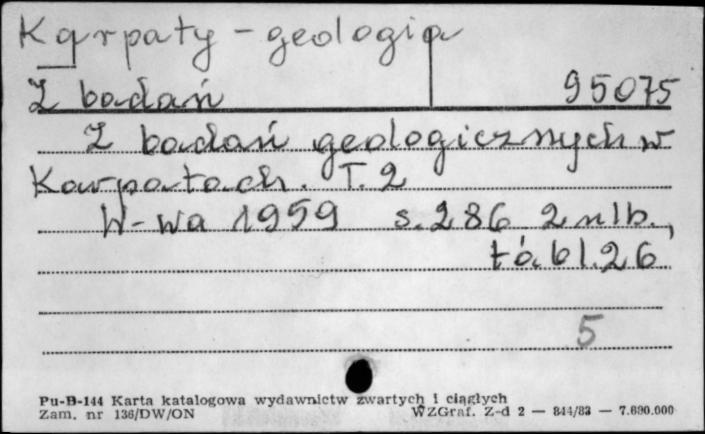 Karpaty - geologia
Z badań 95075
Z badań geologicznych w
Karpatach. T. 2
W-wa 1959 s. 286 2 nlb.,
tabl. 26
5
Pu-B-144 Karta katalogowa wydawnictw zwartych i ciągłych
Zam. nr 136/DW/ON WZGraf. Z-d 2 — 844/83 — 7.690.000